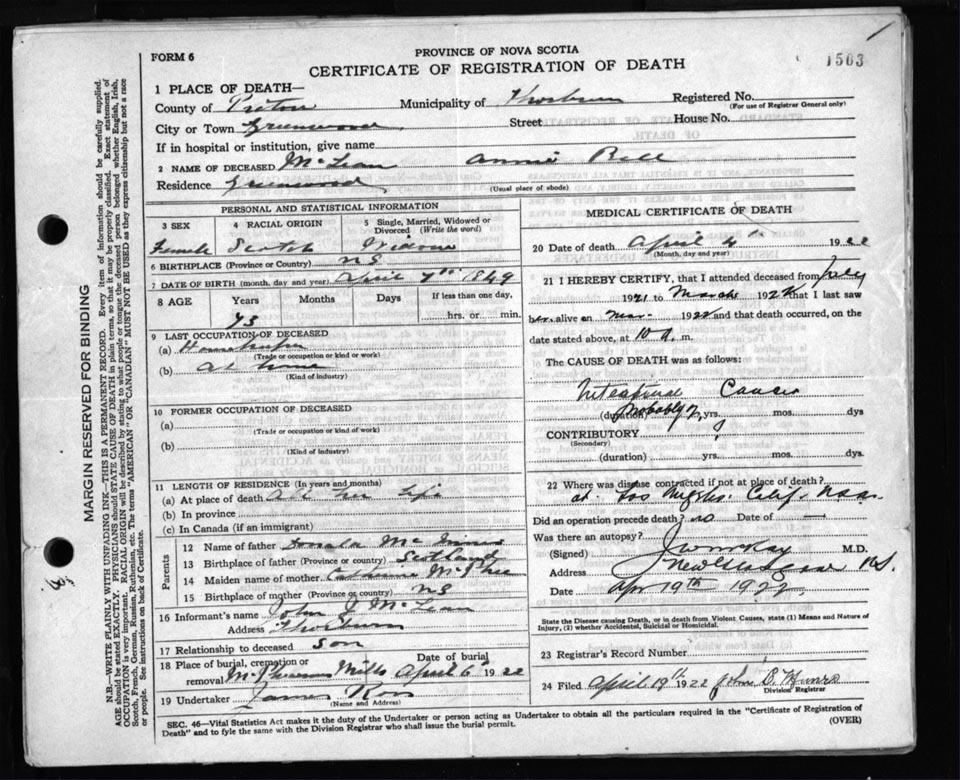 1563
FORM 6
PROVINCE OF NOVA SCOTIA
CERTIFICATE OF REGISTRATION OF DEATH
1 PLACE OF DEATH—
County of Pictou Municipality of Thorburn Registered No.
(For use of Registrar General only)
City or Town Greenwood Street House No.
If in hospital or institution, give name
2 NAME OF DECEASED McLean Annie Bell
Residence Greenwood (Usual place of abode)
PERSONAL AND STATISTICAL INFORMATION
3 SEX 4 RACIAL ORIGIN 5 Single, Married, Widowed or Divorced (Write the word)
Female Scotch Widow
6 BIRTHPLACE (Province or Country) N S
7 DATE OF BIRTH (month, day and year) April 7th 1849
8 AGE Years Months Days If less than one day,
73 hrs. or min.
9 LAST OCCUPATION OF DECEASED
(a) Housekeeper
(Trade or occupation or kind or work)
(b) at home
(Kind of industry)
10 FORMER OCCUPATION OF DECEASED
(a)
(Trade or occupation or kind of work)
(b)
(Kind of Industry)
11 LENGTH OF RESIDENCE (In years and months)
(a) At place of death All her life
(b) In province
(c) In Canada (if an immigrant)
Parents
12 Name of father Donald Mc
13 Birthplace of father (Province or country) Scotland
14 Maiden name of mother Catherine McPhee
15 Birthplace of mother (Province or country) N S
16 Informant's name John J McLean
Address Thorburn
17 Relationship to deceased Son
18 Place of burial, cremation or removal McPhersons Mills Date of burial April 6th 1922
19 Undertaker James Ross
(Name and Address)
MEDICAL CERTIFICATE OF DEATH
20 Date of death April 4th 1922
(Month, day and year)
21 I HEREBY CERTIFY, that I attended deceased from July
1921 to March 1922 that I last saw
her alive on Mar 1922 and that death occurred, on the
date stated above, at 10 a. m.
The CAUSE OF DEATH was as follows:
Cancer
(duration) probably 2 yrs. mos. dys
CONTRIBUTORY
(Secondary)
(duration) yrs. mos. dys.
22 Where was disease contracted if not at place of death?
at Los Angeles. Calif.
Did an operation precede death? no Date of —
Was there an autopsy?
(Signed) M.D.
Address New Glasgow N.S.
Date Apr 19th 1922
State the Disease causing Death, or in death from Violent Causes, state (1) Means and Nature of Injury, (2) whether Accidental, Suicidal or Homicidal.
23 Registrar's Record Number
24 Filed April 19th 1922 John B. Munro
Division Registrar
SEC. 46—Vital Statistics Act makes it the duty of the Undertaker or person acting as Undertaker to obtain all the particulars required in the "Certificate of Registration of
Death" and to fyle the same with the Division Registrar who shall issue the burial permit. (OVER)
MARGIN RESERVED FOR BINDING
N.B.—WRITE PLAINLY WITH UNFADING INK—THIS IS A PERMANENT RECORD. Every item of information should be carefully supplied.
AGE should be stated EXACTLY. PHYSICIANS should STATE CAUSE OF DEATH in plain terms, so that it may be properly classified. Exact statement of
OCCUPATION is very important. RACIAL ORIGIN will be described by stating to what people or tongue the deceased person belonged whether English, Irish,
Scotch, French, German, Russian, Ruthenian, etc. The terms "AMERICAN" OR "CANADIAN" MUST NOT BE USED as they express citizenship but not a race
or people. See instructions on back of Certificate.